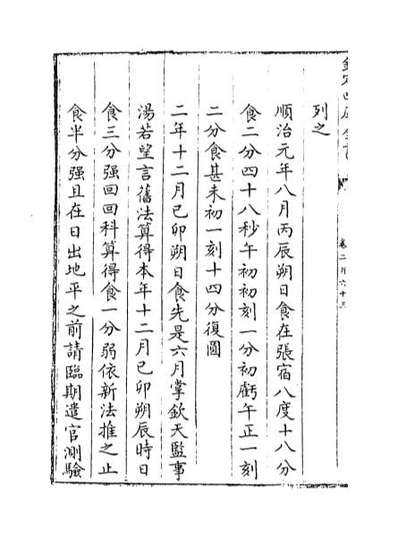 列之
順治元年八月丙辰朔日食在張宿八度十八分
食二分四十八秒午初初刻一分初虧午正一刻
二分食甚未初一刻十四分復圓
二年十二月己卯朔日食先是六月掌欽天監事
湯若望言舊法算得本年十二月己卯朔辰時日
食三分强回回科算得食一分弱依新法推之止
食半分强且在日出地平之前請臨期遣官測驗